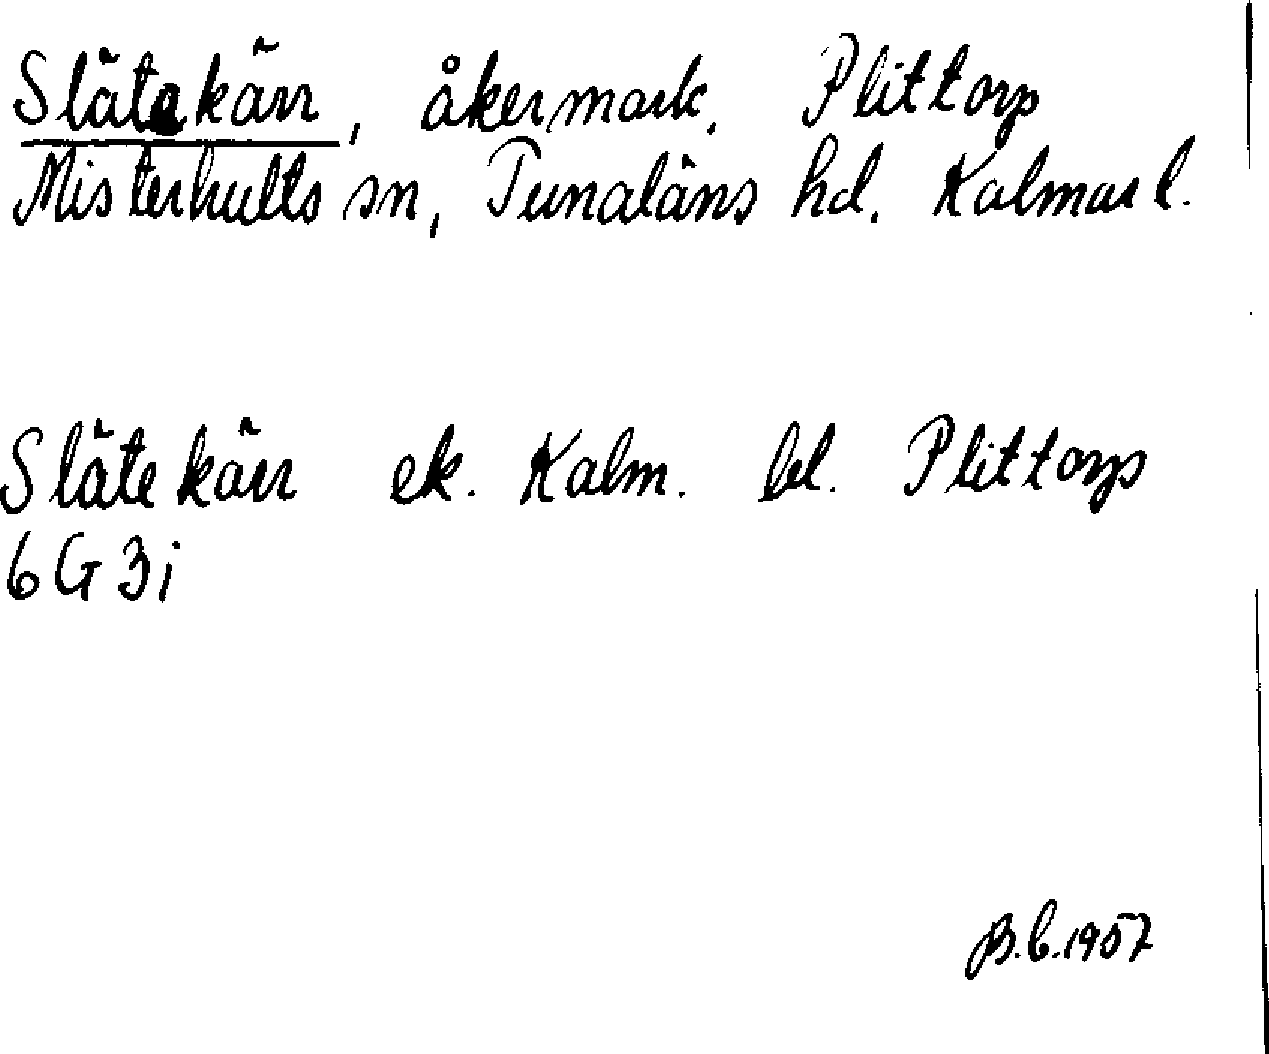 Slätakärr, åkermark, Plittorp
Misterhults sn, Tunaläns hd. Kalmar l.
Slätekärr ek. Kalm. bl. Plittorp
6G3i
B.C.1957